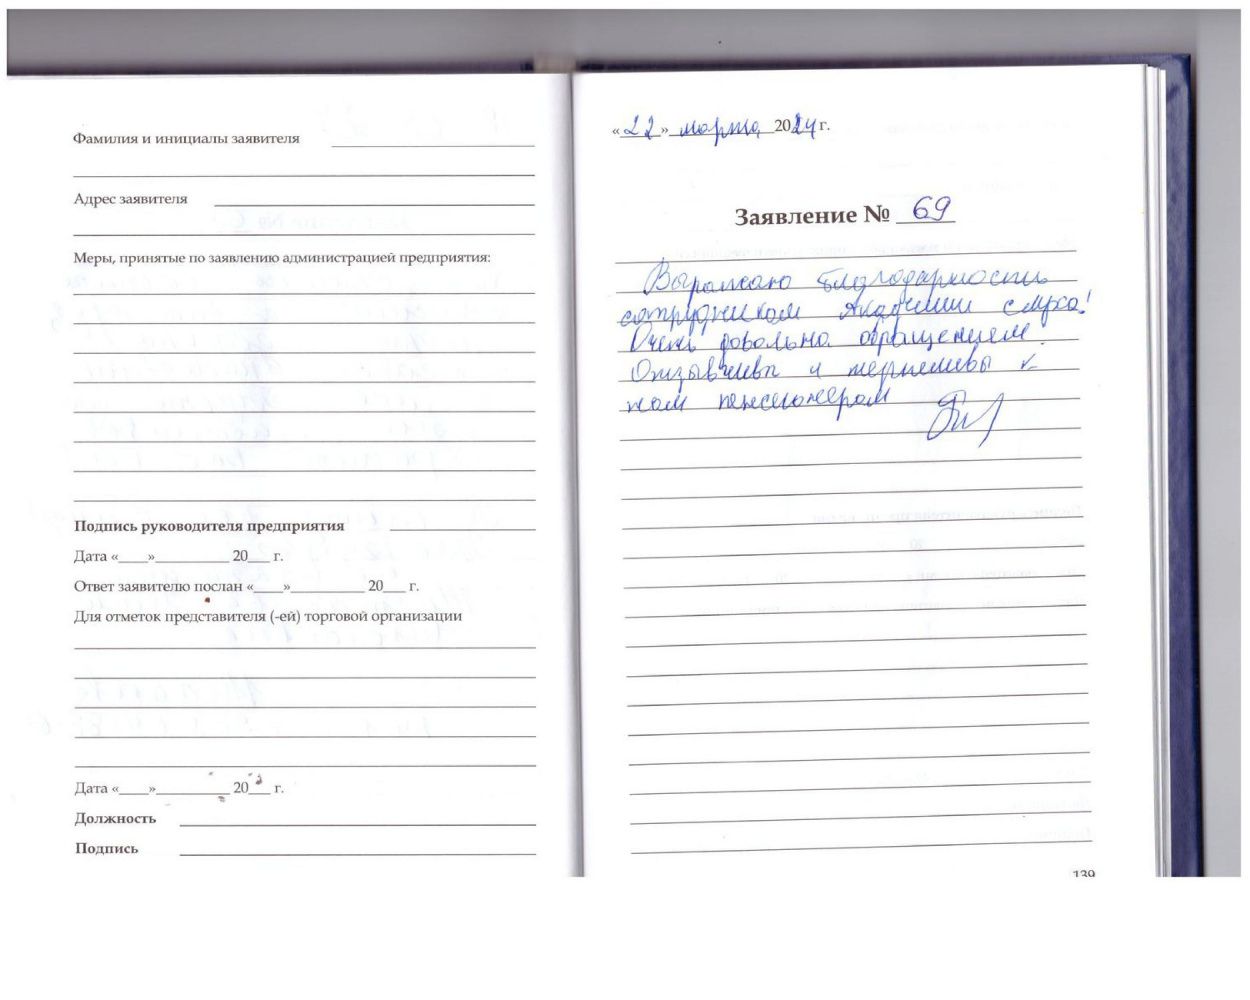 Фамилия и инициалы заявителя
Адрес заявителя
Меры, принятые по заявлению администрацией предприятия:
Подпись руководителя предприятия
Дата «____»__________ 20___ г.
Ответ заявителю послан «____»__________ 20___ г.
Для отметок представителя (-ей) торговой организации
Дата «____»__________ 20___ г.
Должность
Подпись
«22» марта 2024 г.
Заявление № 69
Выражаю благодарность
сотрудникам Академии слуха!
Очень довольна обращением.
Отзывчивы и терпеливы к
нам пенсионерам
139